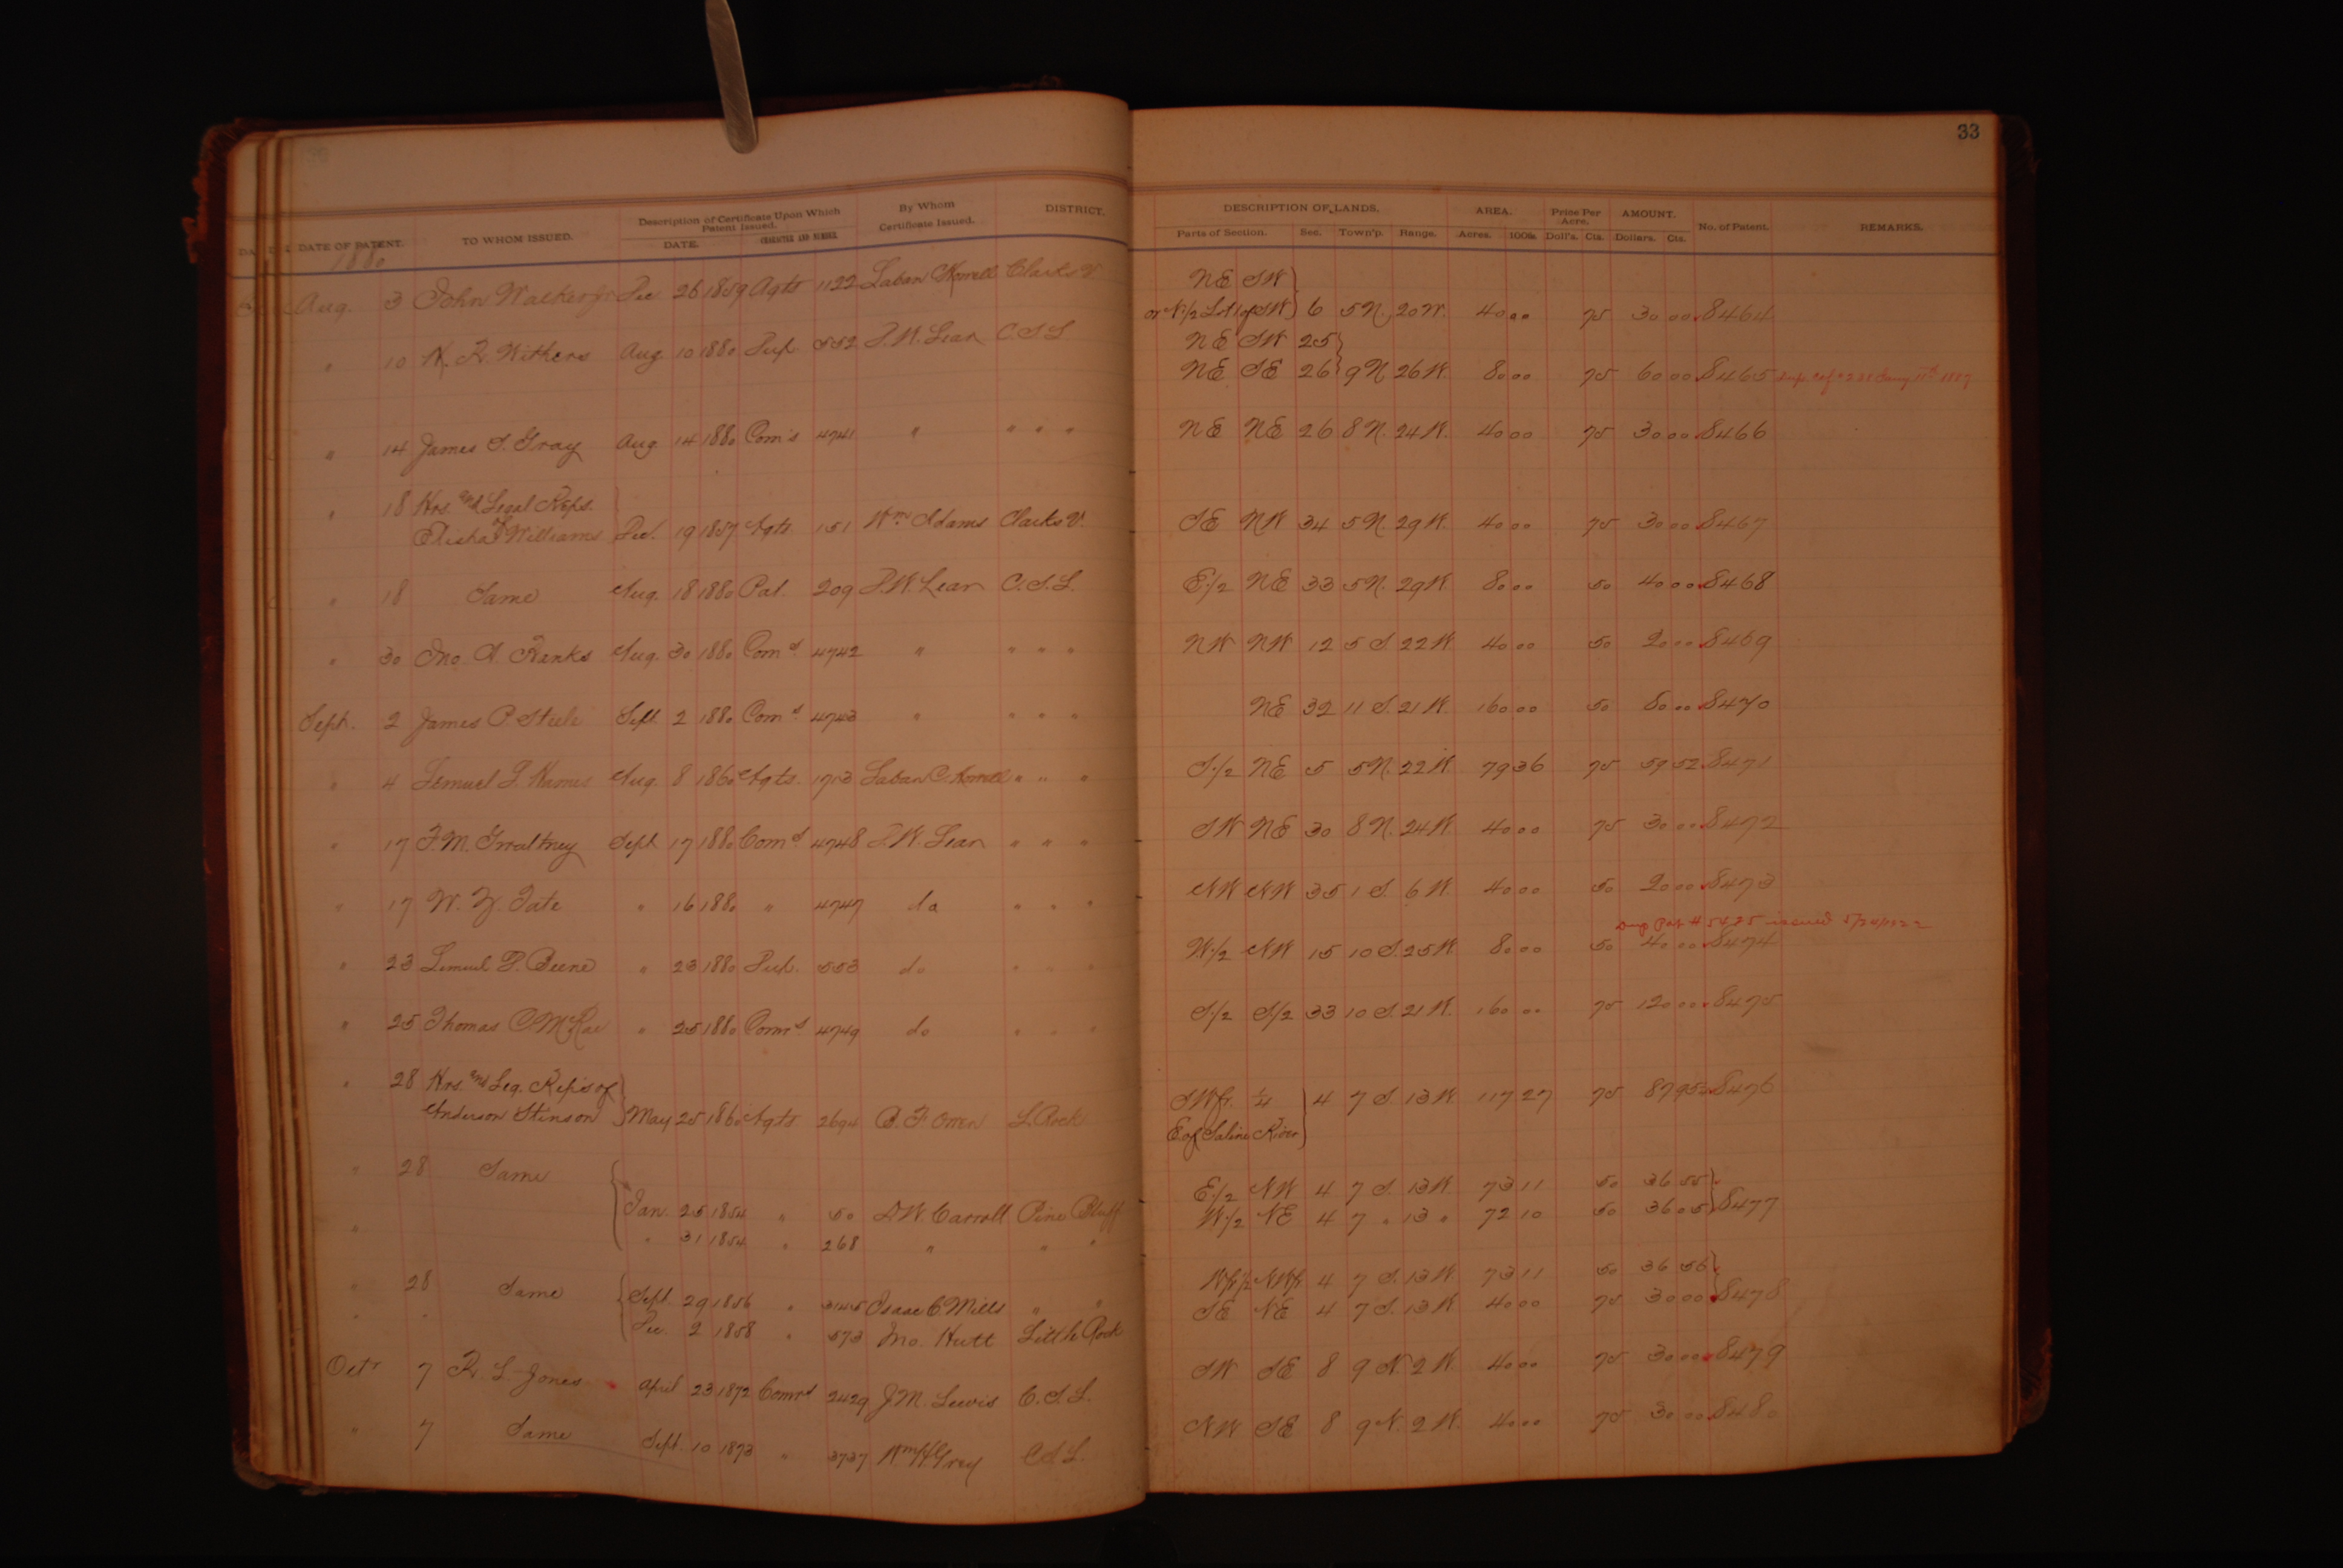 33
Description of Certificate Upon Which Patent Issued. By Whom Certificate Issued. DISTRICT. DESCRIPTION OF LANDS. AREA. Price Per Acre. AMOUNT. No. of Patent. REMARKS.
DATE OF PATENT. TO WHOM ISSUED. DATE. CHARACTER AND NUMBER. Parts of Section. Sec. Town'p. Range. Acres. 100ths Doll's. Cts. Dollars. Cts.
1880
NE SW
Aug. 3 John Walker Jr Dec 26 1859 Agts 1122 Laban C Howell Clarks V. or N 1/2 Lot 1 of SW 6 5 N. 20 W. 40 00 75 30 00 8464
NE SW 25
" 10 R. Withers Aug 10 1880 Dup. 552 D. W. Lear C S L NE SE 26 9 N 26 W. 80 00 75 60 00 8465
" 14 James S. Gray Aug. 14 1880 Com's 4741 " " " " NE NE 26 8 N. 24 W. 40 00 75 30 00 8466
" 18 Hrs. and Legal Reps. of
Elisha Williams Dec. 19 1857 Agts. 151 Wm Adams Clarks V. SE NW 34 5 N. 29 W. 40 00 75 30 00 8467
" 18 Same Aug. 18 1880 Pat. 209 D. W. Lear C. S. L. E 1/2 NE 33 5 N. 29 W. 80 00 50 40 00 8468
" 30 Jno. A. Hanks Aug. 30 1880 Com s. 4742 " " " " NW NW 12 5 S 22 W 40 00 50 20 00 8469
Sept. 2 James P. Steele Sept 2 1880 Com s 4743 " " " " NE 32 11 S. 21 W. 160 00 50 80 00 8470
" 4 Lemuel Aug. 8 1860 Agts. 1713 Laban C. Howell " " " S. 1/2 NE 5 5 N. 22 W. 79 36 75 59 52 8471
" 17 F. M. Gwaltney Sept 17 1880 Com s 4748 D. W. Lear " " " SW NE 30 8 N. 24 W. 40 00 75 30 00 8472
" 17 W. Y. Tate " 16 1880 " 4747 do " " " NW NW 35 1 S. 6 W. 40 00 50 20 00 8473
Dup Pat # issued 5/24/1922
" 23 Lemuel P. Beene " 23 1880 Dup. 553 do " " " W. 1/2 NW 15 10 S. 25 W 80 00 50 40 00 8474
" 25 Thomas C McRae " 25 1880 Com s 4749 do " " " S. 1/2 S. 1/2 33 10 S. 21 W. 160 00 75 120 00 8475
" 28 Hrs. and Leg. Reps of
Anderson Stinson May 25 1860 Agts 2694 B. F. Owen L. Rock SW fr. 1/4 4 7 S. 13 W. 117 27 75 87 95 8476
E of Saline River
" 28 Same
Jan. 25 1854 " 50 D W Carroll Pine Bluff E. 1/2 NW 4 7 S. 13 W. 73 11 50 36 55
" " 31 1854 " 268 " " " W 1/2 NE 4 7 " 13 " 72 10 50 36 05 8477
" 28 Same Sept 29 1856 " 3145 Isaac C Mills " " W fr 1/2 NW fr 4 7 S. 13 W. 73 11 50 36 56
" " Dec. 2 1858 " 573 Jno. Hutt Little Rock SE NE 4 7 S. 13 W 40 00 75 30 00 8478
Oct r 7 R. L. Jones April 23 1872 Com s 2429 J M. Lewis C. S. L. SW SE 8 9 N. 2 W. 40 00 75 30 00 8479
" 7 Same Sept. 10 1873 " 3737 Wm H Grey C S L. NW SE 8 9 N. 2 W. 40 00 75 30 00 8480